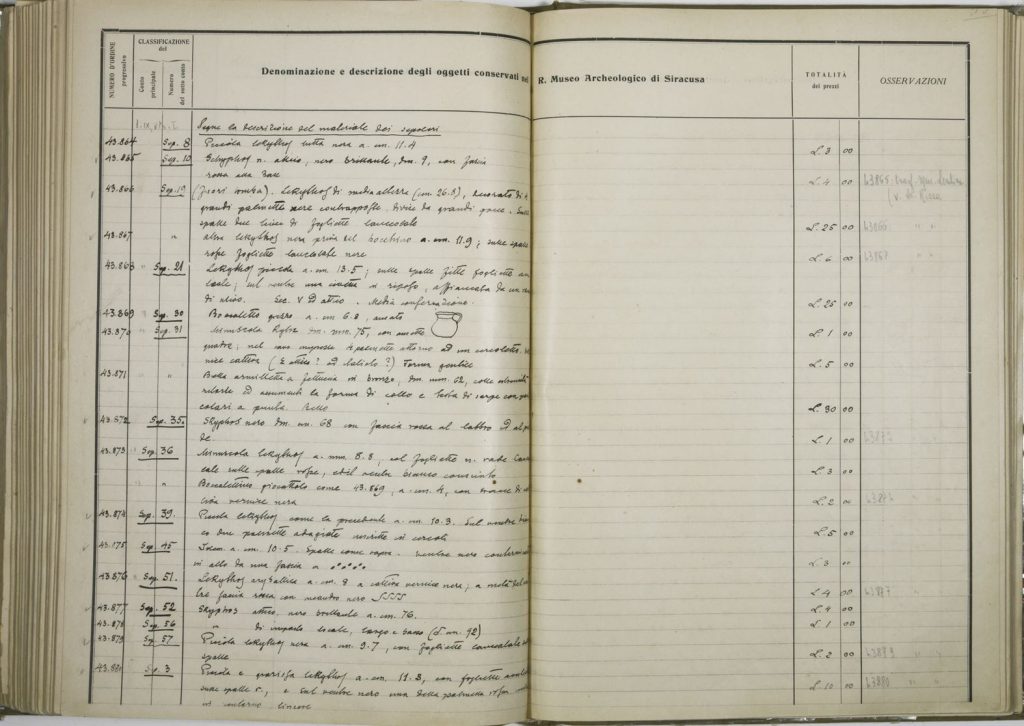 NUMERO D'ORDINE progressivo
CLASSIFICAZIONE del
Conto principale
Numero del sotto conto
Denominazione e descrizione degli oggetti conservati nel R. Museo Archeologico di Siracusa
TOTALITÀ dei prezzi
OSSERVAZIONI
Segue la descrizione del materiale dei sepolcri
43.864 Sep. 8 Piccola lekythos tutta nera a. cm. 11.4 L. 3 00
43.865 Sep. 10 Schyphos n. attico, nero brillante, dm. 9, con fascia
rossa alla base L. 4 00 43865
43.866 Sep. 19 Lekythos di media altezza (cm. 26.8), decorato di
grandi palmette nere contrapposte divise da grandi
spalle due linee di fogliette lanceolate L. 25 00 43866 " "
43.867 " altra lekythos nera priva del bocchino a. cm. 11.9; sulle spalle
rosse fogliette lanceolate nere L. 6 00 43867
43.868 " Sep. 21 Lekythos piccola a. cm. 13.5; sulle spalle fitte fogliette
di attico. Sec. V Media conservazione. L. 25 00
43.869 Sep. 30 Boccaletto grezzo a. cm 6.8, ansato L. 1 00
43.870 Sep. 31 Minuscola kylix dm. mm. 75, con ansette
quadre; nel cavo impresse 4 palmette attorno ad un cerchietto.
nice cattiva (È attico? Forma gentile L. 5 00
43.871 " " Bella armilletta a fettuccia di bronzo, dm. mm. 62, colle estremità
rilevate ed aventi la forma di collo e testa di serpe con
a punta. Bello L. 30 00
43.872 Sep. 35 Skyphos nero dm. cm. 68 con fascia rossa al labbro ed al pie
de. L. 1 00 43872 " "
43.873 " Sep. 36 Minuscola lekythos a. cm. 8.8, col fogliette n. rade
sulle spalle rosse, ed il ventre bianco L. 3 00
" Boccalettino giocattolo come 43.869, a. cm. 4, con tracce di
vernice nera L. 2 00 " "
43.874 Sep. 39. Piccola lekythos come la precedente a. cm. 10.3. Sul ventre
co due palmette adagiate inscritte in cerchi L. 5 00
43.875 Sep. 45 Idem a. cm. 10.5. Spalle come sopra. Ventre nero
in alto da una fascia a L. 3 00
43.876 Sep. 51. Lekythos aryballica a. cm. 8 a cattiva vernice nera; a metà del
tre fascia rossa con meandro nero SSSS L. 4 00 43877 " "
43.877 Sep. 52 Skyphos attico nero brillante a cm. 76. L. 4 00
43.878 Sep. 56 " di impasto locale, largo e basso L. 1 00
43.879 Sep. 57 Piccola lekythos nera a. cm. 9.7, con fogliette lanceolate
spalle L. 2 00 43879 " "
43.880 Sep. 3 Piccola e graziosa lekythos a. cm. 11.3, con fogliette
sulle spalle r., e sul ventre nero una bella palmetta
L. 10 00 43880 " "